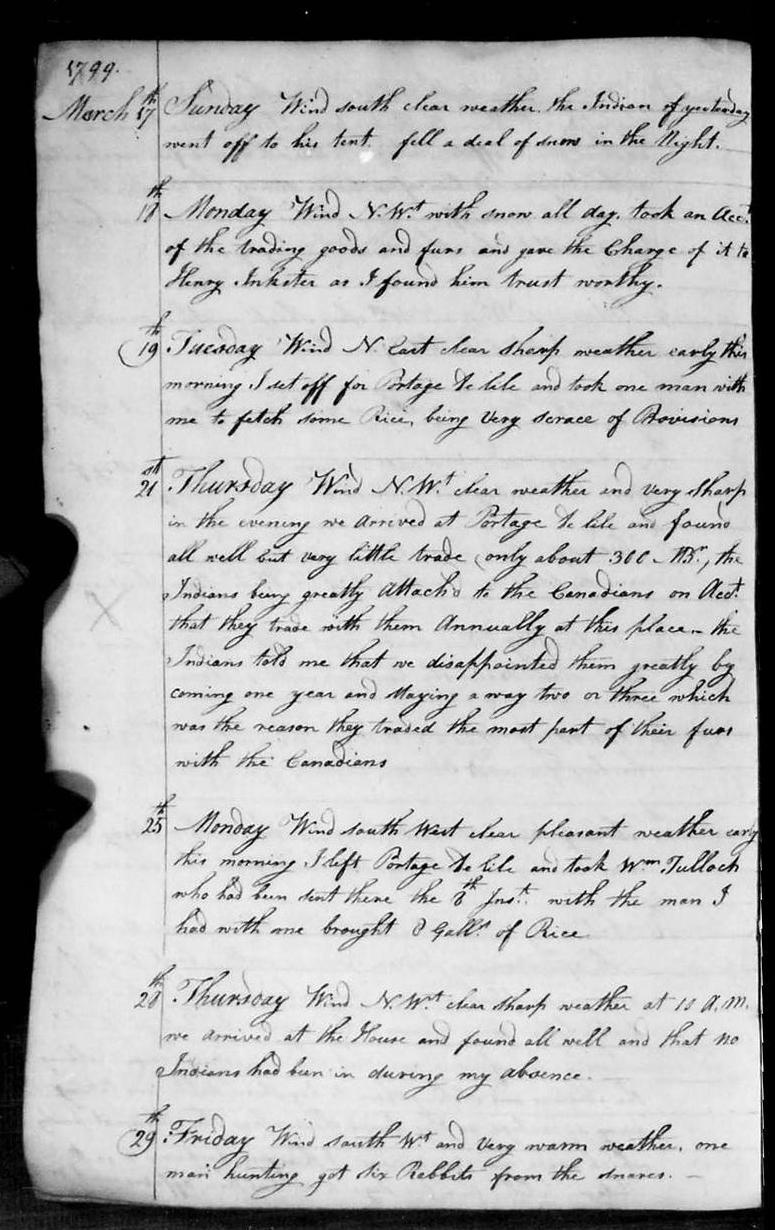 1799.
March 17th Sunday Wind south clear weather. the Indian of yesterday
went off to his tent. fell a deal of snow in the Night.
18th Monday Wind N.Wt with snow all day. took an Acct
of the trading goods and furs and gave the Charge of it to
Henry Inkster as I found him trust worthy.
19th Tuesday Wind N. East clear sharp weather early this
morning I set off for Portage De Lile and took one man with
me to fetch some Rice, being Very scrace of Provisions
21st Thursday Wind N.Wt clear weather and very sharp
in the evening we arrived at Portage De Lile and found
all well but very little trade (only about 300 MBr, the
Indians being greatly Attach'd to the Canadians on Acct
that they trade with them Annually at this place - the
Indians told me that we disappointed them greatly by
coming one year and staying away two or three which
was the reason they traded the most part of their furs
with the Canadians
X
25th Monday Wind south West clear pleasant weather early
this morning I left Portage De Lile and took Wm Tulloch
who had been sent there the 8th Inst. with the man I
had with me brought 8 Galls of Rice
28th Thursday Wind N.Wt clear sharp weather at 10 A.M.
we arrived at the House and found all well and that no
Indians had been in during my absence.
29th Friday Wind south Wt and Very warm weather. one
man hunting got six Rabbits from the snares. -